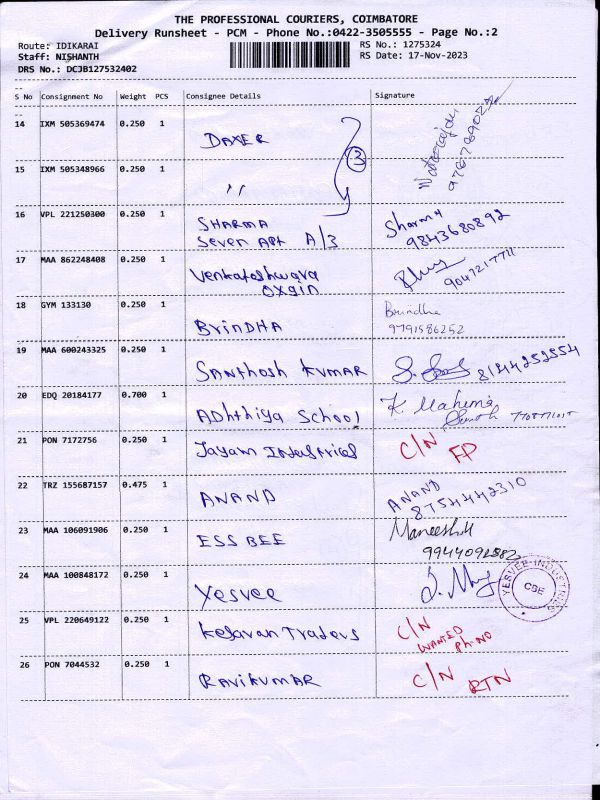 THE PROFESSIONAL COURIERS, COIMBATORE
Delivery Runsheet - PCM - Phone No.:0422-3505555 - Page No.:2
Route: IDIKARAI
RS No.: 1275324
Staff: NISHANTH
RS Date: 17-Nov-2023
DRS No.: DCJB127532402
S No Consignment No Weight PCS Consignee Details Signature
14 IXM 505369474 0.250 1 DAXER
3
9787890272
15 IXM 505348966 0.250 1 ,,
16 VPL 221250300 0.250 1 SHARMA Sharma
Seven APt A/3 9843680892
17 MAA 862248408 0.250 1 Venkateshwara
OXGin 9047217711
18 GYM 133130 0.250 1 BrinDHA Brindha
9791586252
19 MAA 600243325 0.250 1 SANthosh KUMAR 8144252554
20 EDQ 20184177 0.700 1 ADhthiya School K. Mahima
21 PON 7172756 0.250 1 Jayam Industries C/N
FP
22 TRZ 155687157 0.475 1 ANAND ANAND
8754442310
23 MAA 106091906 0.250 1 ESS BEE Maneesh
9944092582
24 MAA 100848172 0.250 1 Yesvee
YESVEE INDUSTRIES
CBE
25 VPL 220649122 0.250 1 Kesavan Traders C/N
WANTED
Ph.NO
26 PON 7044532 0.250 1 RAVIKUMAR C/N RTN